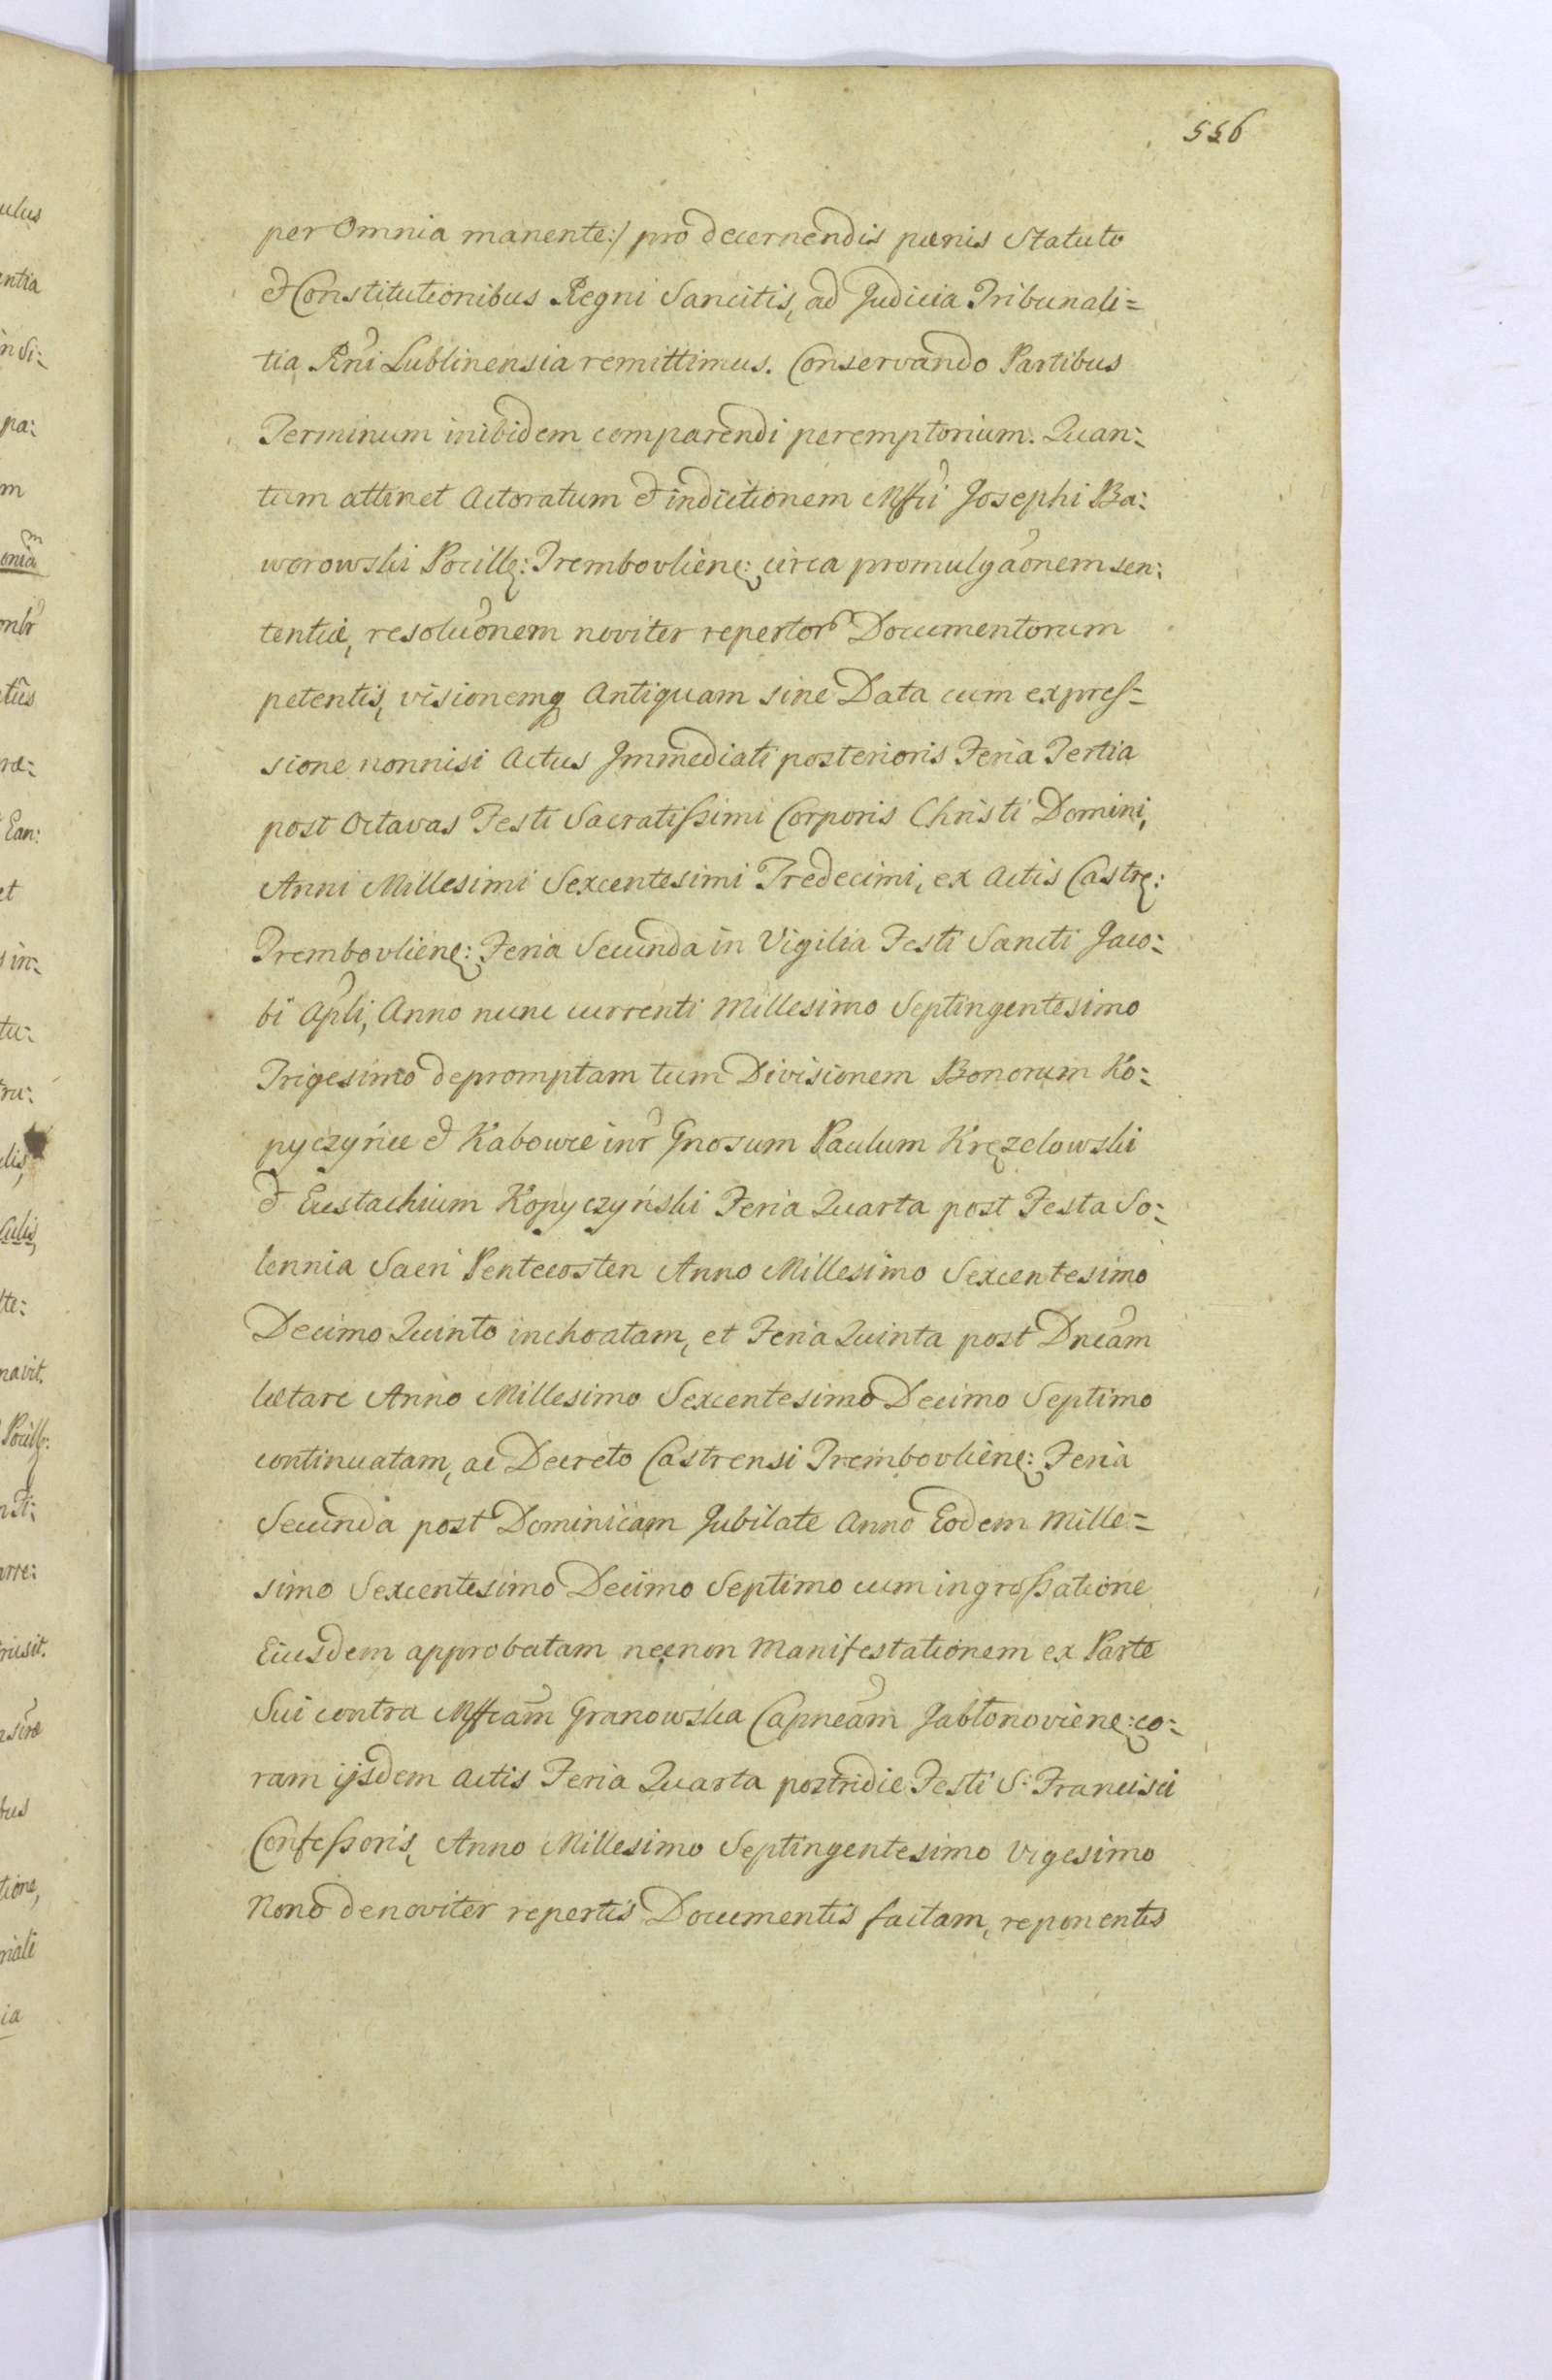 556
per Omnia manente:/ pro decernendis pænis Statuto
& Constitutionibus Regni Sancitis, ad Judicia Tribunali=
tia Rni Lublinensia remittimus. Conservando Partibus
Terminum inibidem comparendi peremptorium. Quan:
tum attinet Actoratum & indictionem Mffci Josephi Ba:
worowski Pocille: Trembovliene: circa promulgaonem sen:
tentiæ, resoluonem noviter repertor Documentorum
petentis, visionemq Antiquam sine Data cum expres=
sione nonnisi Actus Immediati posterioris Feria Tertia
post Octavas Festi Sacratissimi Corporis Christi Domini,
Anni Millesimi Sexcentesimi Tredecimi, ex Actis Castre:
Trembovliene: Feria Secunda in Vigilia Festi Sancti Jaco:
bi Apli, Anno nunc currenti Millesimo Septingentesimo
Trigesimo depromptam tum Divisionem Bonorum Ko:
pyczyńce & Kabowce inr Gnosum Paulum Kręzelowski
& Eustachium Kopyczyński Feria Quarta post Festa So:
lennia Sacri Pentecosten Anno Millesimo Sexcentesimo
Decimo Quinto inchoatam, et Feria Quinta post Dncam
lætare Anno Millesimo Sexcentesimo Decimo Septimo
continuatam, ac Decreto Castrensi Trembovliene: Feria
Secunda post Dominicam Jubilate Anno Eodem Mille=
simo Sexcentesimo Decimo Septimo cum ingrossatione
Eiusdem approbatam necnon Manifestationem ex Parte
Sui contra Mffcam Granowska Capneam Jabłonoviene: co:
ram ijsdem Actis Feria Quarta postridie Festi S. Francisci
Confessoris, Anno Millesimo Septingentesimo Vigesimo
Nono denoviter repertis Documentis factam, reponentis